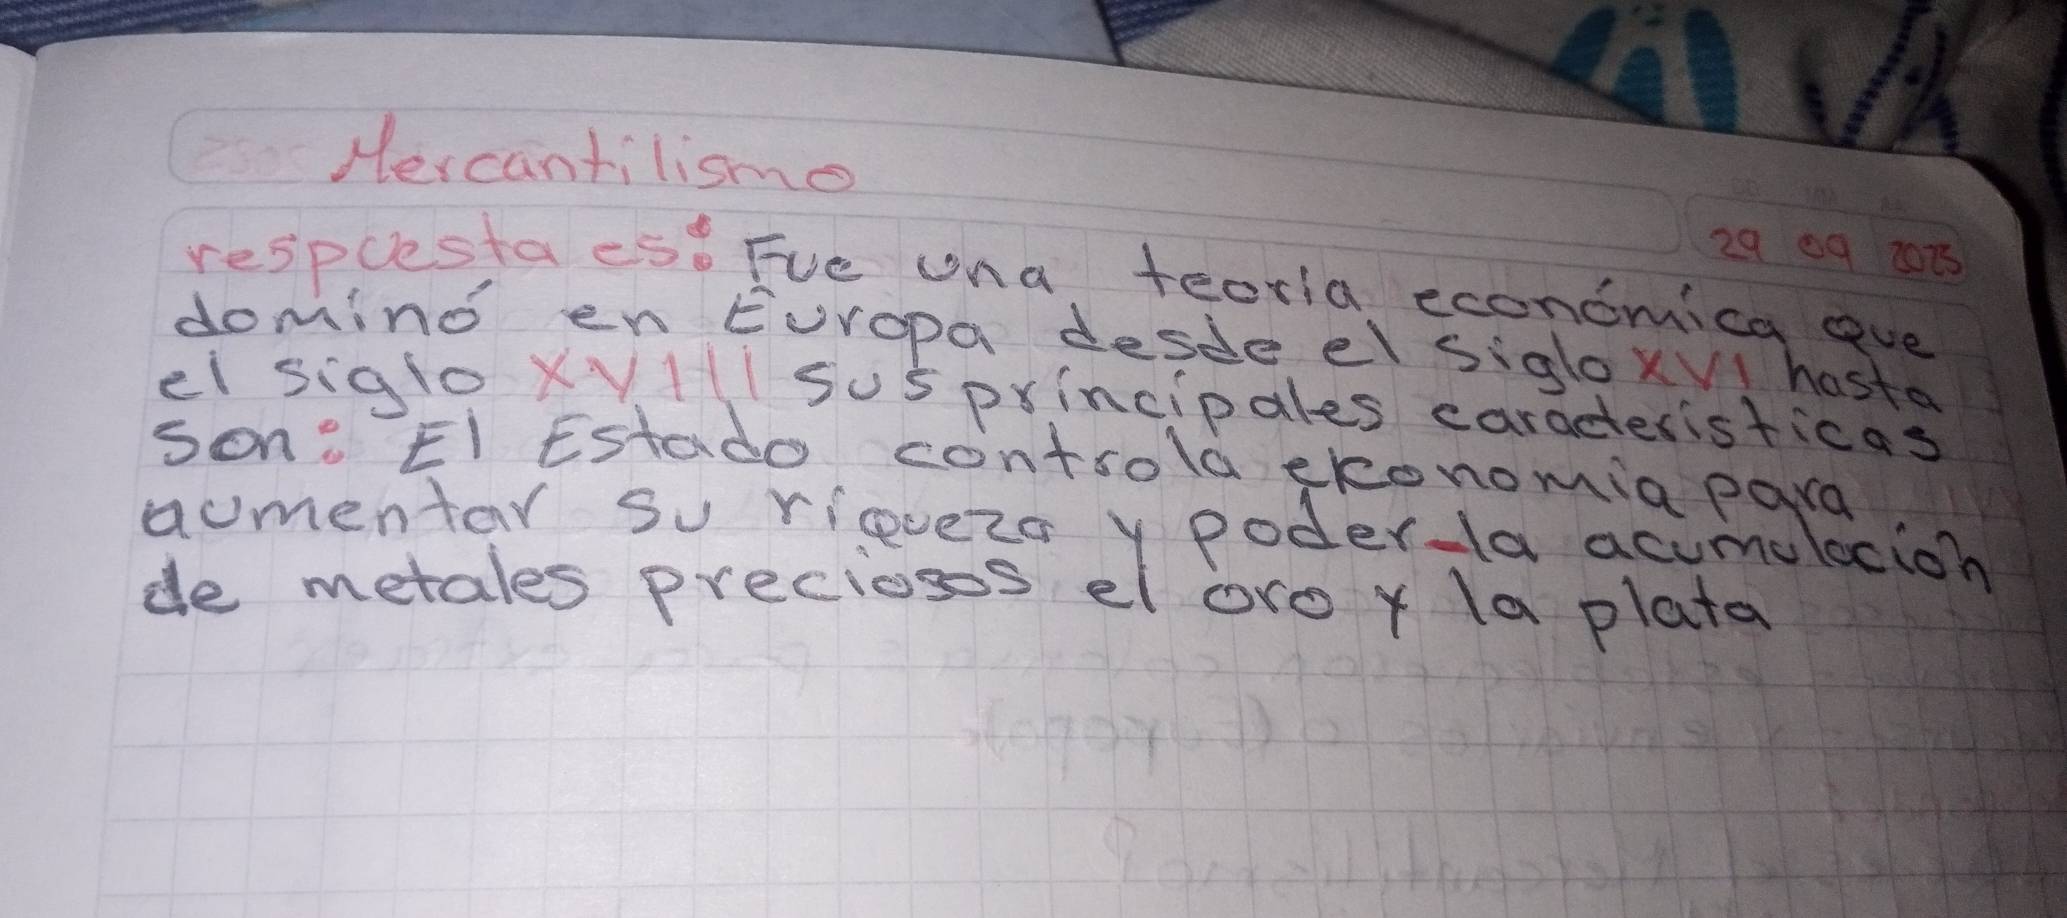 Mercantilismo
29 09 2025
respuesta es: Fue una teoria económica que
dominó en Europa desde el siglo XVI hasta
el siglo XVIII sus principales caracteristicas
son: El Estado controla ekonomia para
aumentar su riqueza y poder-la acumulación
de metales preciosos el oro y la plata